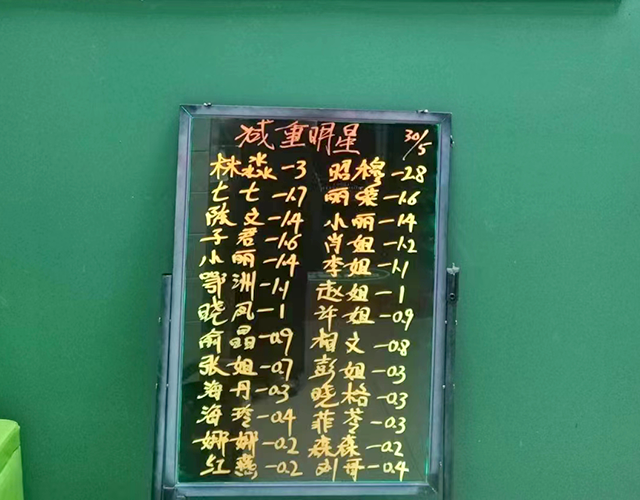 减重明星 30/5
林淼-3 昭穆-2.8
七七-1.7 丽荣-1.6
陈文-1.4 小丽-1.4
子君-1.6 肖姐-1.2
小丽-1.4 李姐-1.1
鄂洲-1.1 赵姐-1
晓凤-1 许姐-0.9
俞晶-0.9 相文-0.8
张姐-0.7 彭姐-0.3
海丹-0.3 晓格-0.3
海玲-0.4 菲芩-0.3
娜娜-0.2 森森-0.2
红燕-0.2 刘哥-0.4